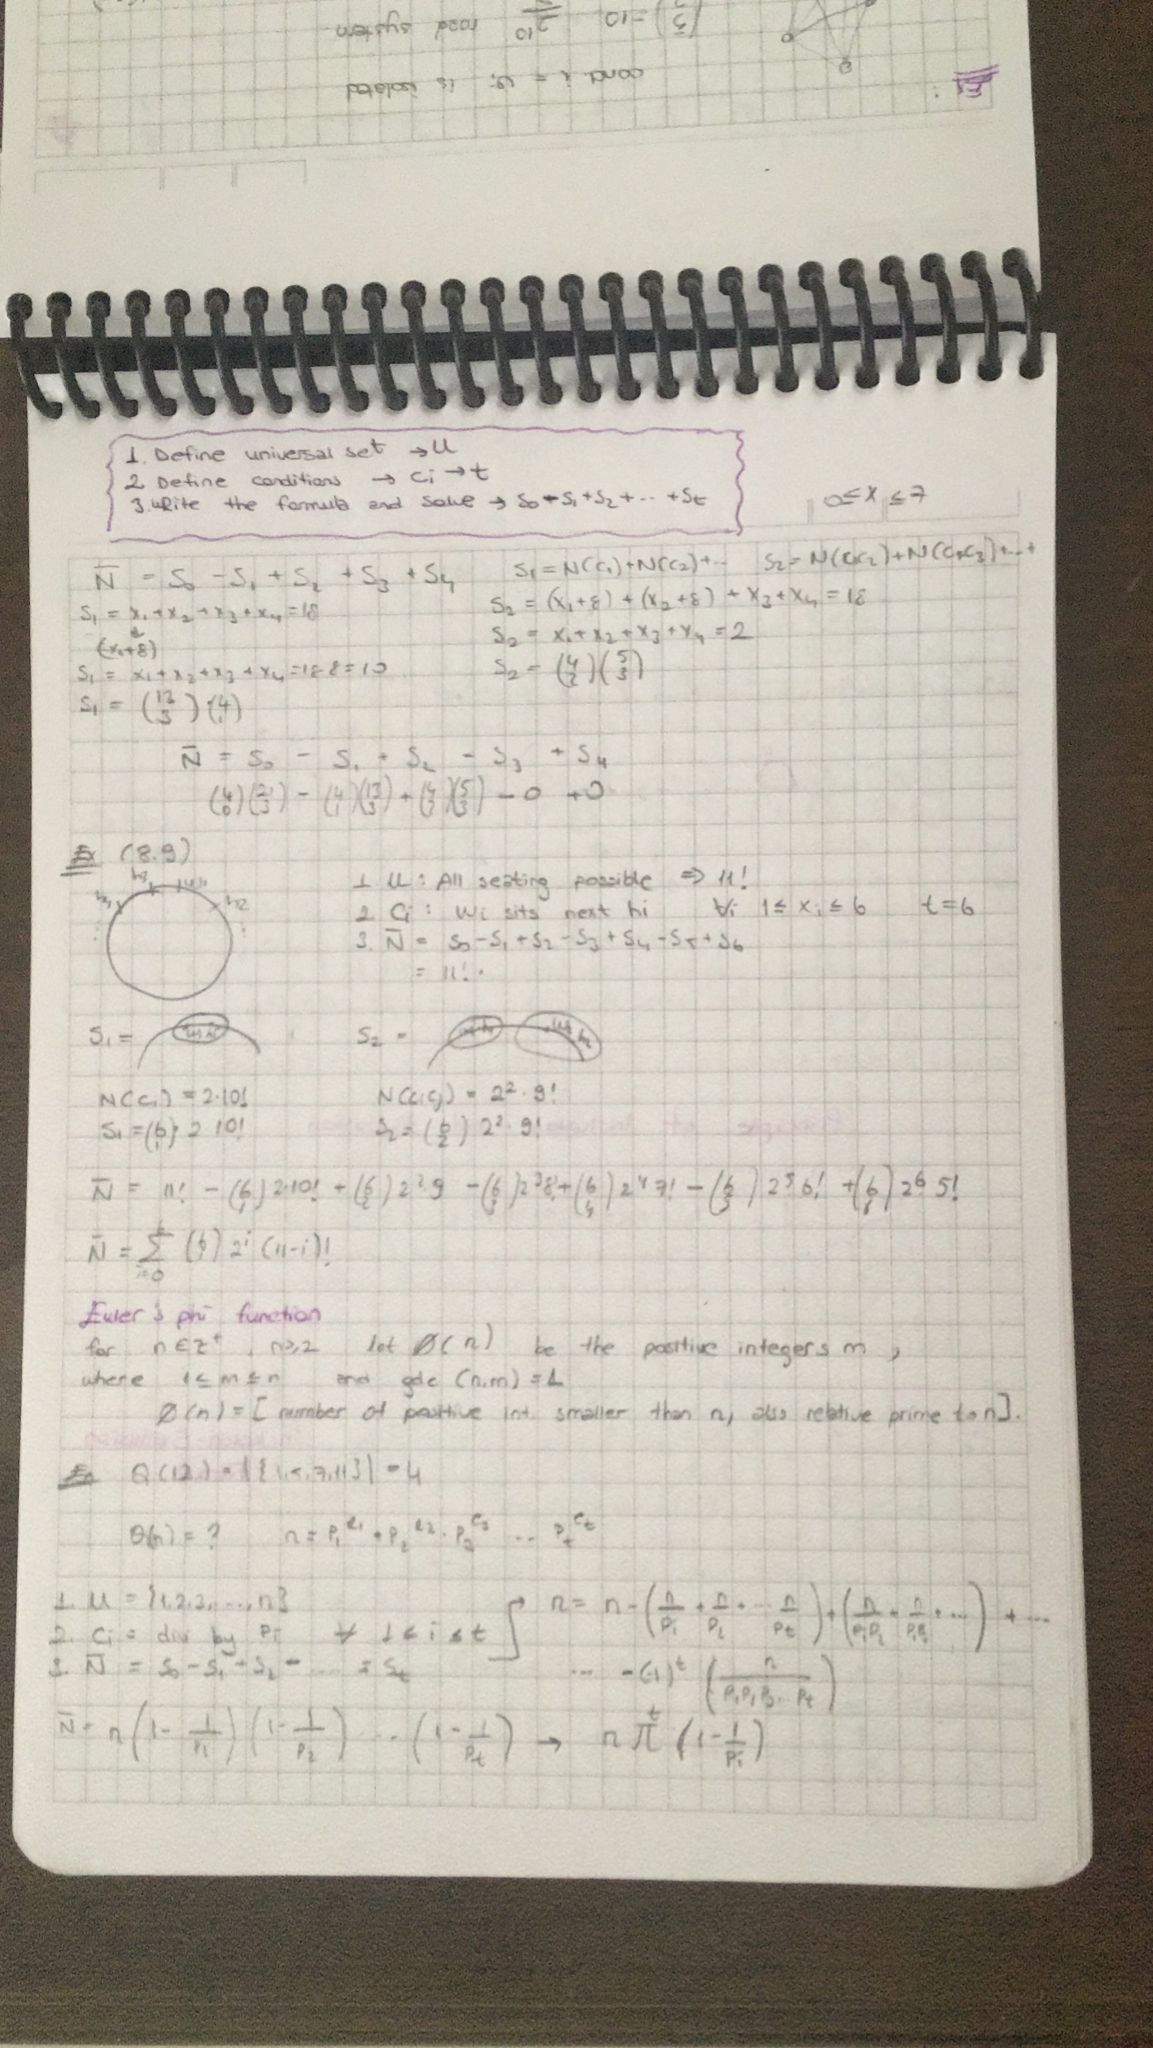 cond i = v_i is isolated
(5 3) = 10 2^10 road system
Ex:
1. Define universal set → U
2. Define conditions → ci → t
3. Write the formula and solve → S0 + S1 + S2 + ... + St
0 ≤ x ≤ 7
N̄ = S0 - S1 + S2 + S3 + S4
S1 = N(c1) + N(c2) + ... S2 = N(c1c2) + N(c2c3) + ... +
S1 = x1 + x2 + x3 + x4 = 18
(x1+8)
S1 = x1 + x2 + x3 + x4 = 18-8 = 10
S1 = (13 3) (4 1)
S2 = (x1+8) + (x2+8) + x3 + x4 = 18
S2 = x1 + x2 + x3 + x4 = 2
S2 = (4 2)(5 3)
N̄ = S0 - S1 + S2 - S3 + S4
(4 0)(21 3) - (4 1)(13 3) + (4 2)(5 3) - 0 + 0
Ex (8.9)
1 U: All seating possible ⇒ 11!
2 Ci: wi sits next hi ∀i 1 ≤ xi ≤ 6 t=6
3. N̄ = S0 - S1 + S2 - S3 + S4 - S5 + S6
= 11!.
S1 =
S2 =
N(ci) = 2·10!
S1 = (6 1)· 2 10!
N(cicj) = 2² · 9!
S2 = (6 2) 2² 9!
N̄ = 11! - (6 1) 2·10! + (6 2) 2² 9 - (6 3) 2³ 8! + (6 4) 2⁴ 7! - (6 5) 2⁵ 6! + (6 6) 2⁶ 5!
N̄ = Σ i=0 (6 i) 2^i (11-i)!
Euler's phi function
for n ∈ Z⁺, n ≥ 2 let Ø(n) be the positive integers m,
where 1 ≤ m ≤ n and gdc (n,m) = 1
Ø(n) = [number of positive int. smaller than n, also relative prime to n].
Ex Ø(12) = |{1,5,7,11}| = 4
Ø(n) = ? n = p1^e1 · p2^e2 · p3^e3 ... pt^et
1. U = {1,2,3,...,n}
2. Ci = div by pi ∀ 1 ≤ i ≤ t
3. N̄ = S0 - S1 + S2 - ... = St
n = n - (n/p1 + n/p2 + ... n/pt) + (n/p1p2 + n/p1p3 + ...) + ...
... -(-1)^t (n / p1p2p3...pt)
N̄ = n (1 - 1/p1) (1 - 1/p2) ... (1 - 1/pt) → n π^t (1 - 1/pi)